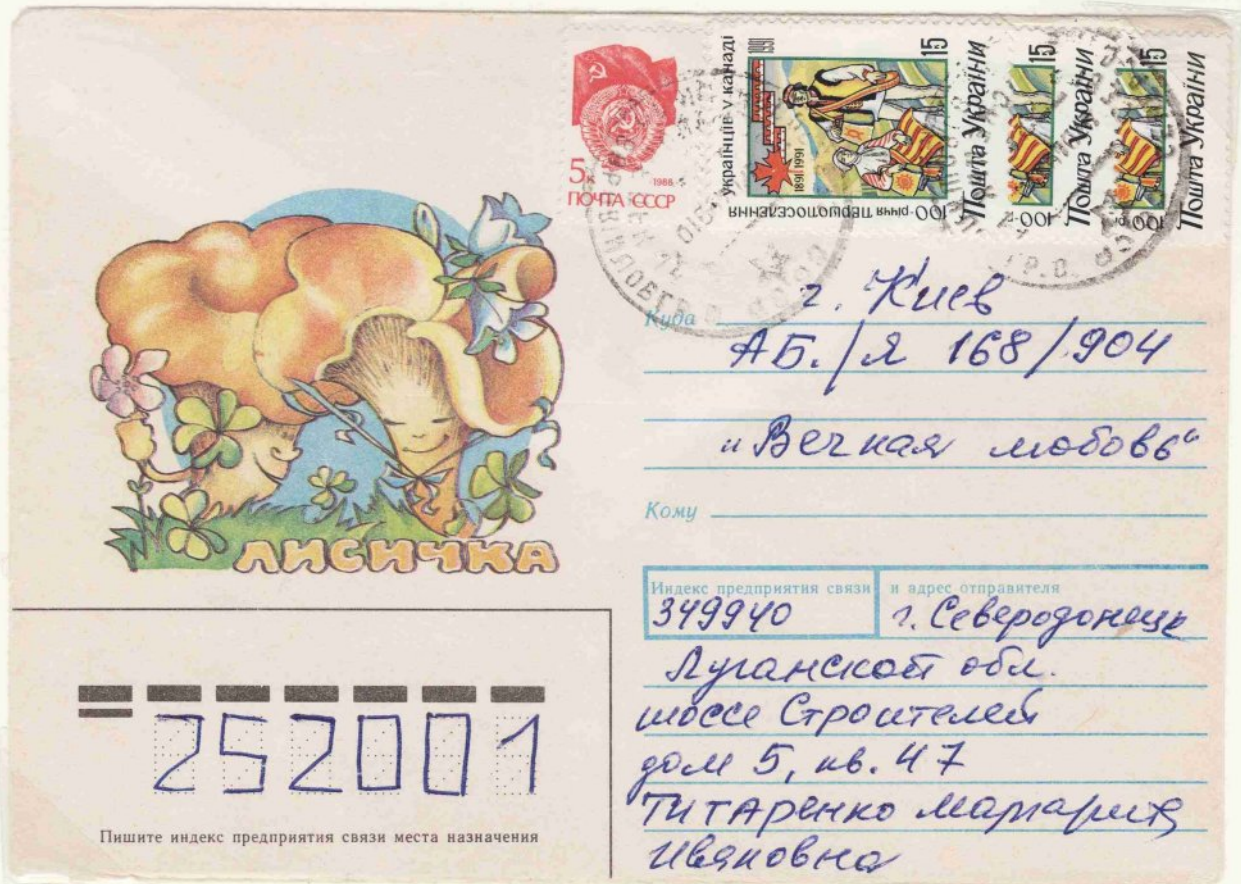 5к 1988
ПОЧТА СССР
100-річчя Першопоселення
українців у канаді
1891 1991
1991
15
Пошта України
15
100-р
Пошта України
15
100-р
Пошта України
Куда г. Киев
АБ./Я 168/904
"Вечная любовь"
Кому
ЛИСИЧКА
Индекс предприятия связи и адрес отправителя
349940 г. Северодонецк
Луганской обл.
шоссе Строителей
дом 5, кв. 47
Титаренко Маргарита
Ивановна
252001
Пишите индекс предприятия связи места назначения